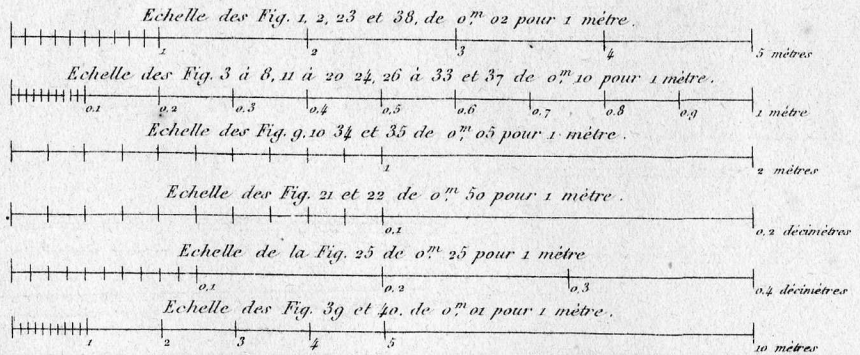 Echelle des Fig. 1, 2, 23 et 38, de 0,m 02 pour 1 métre.
1 2 3 4 5 métres
Echelle des Fig. 3 á 8, 11 á 20 24, 26 á 33 et 37 de 0,m 10 pour 1 métre.
0.1 0.2 0.3 0.4 0.5 0.6 0.7 0.8 0.9 1 métre
Echelle des Fig. 9, 10 34 et 35 de 0,m 05 pour 1 métre.
1 2 métres
Echelle des Fig. 21 et 22 de 0,m 50 pour 1 métre.
0.1 0.2 décimétres
Echelle de la Fig. 25 de 0,m 25 pour 1 métre
0,1 0,2 0,3 0.4 décimétres
Echelle des Fig. 39 et 40. de 0,m 01 pour 1 métre.
1 2 3 4 5 10 métres